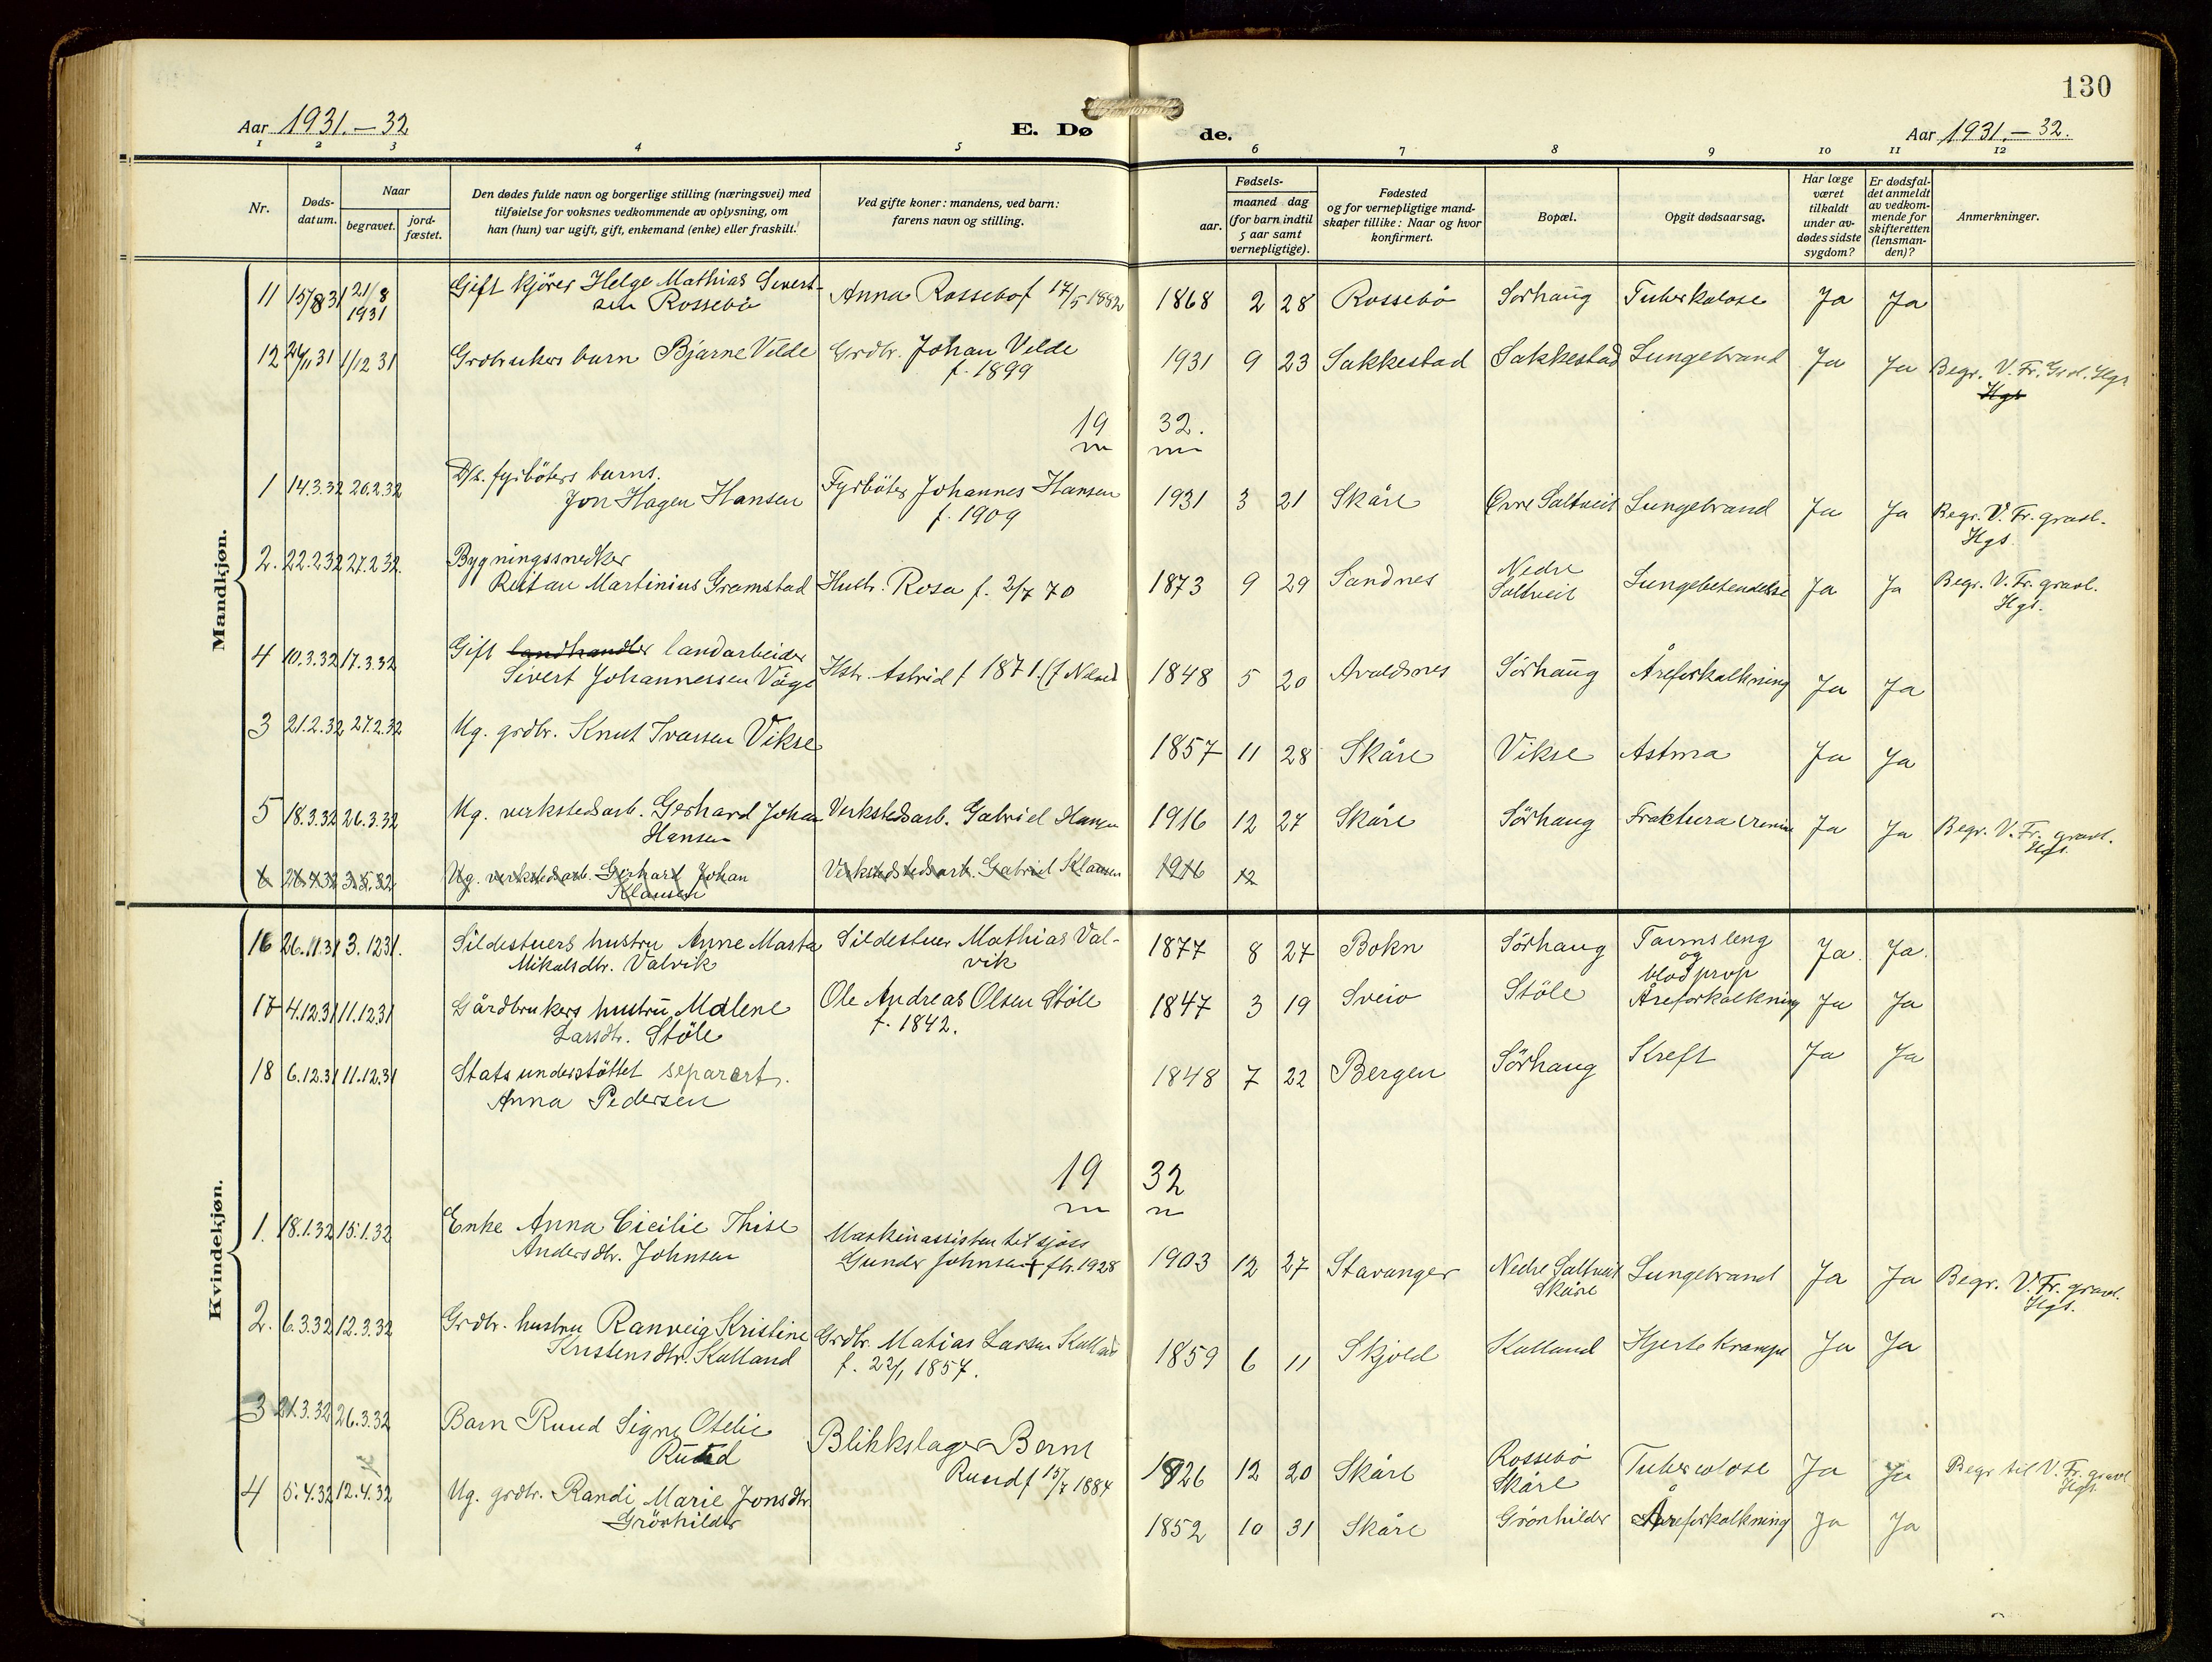 130
Aar 1931.-32
E. Døde.
Aar 1931.-32.
1 2 3 4 5 6 7 8 9 10 11 12
Nr.
Døds-datum.
Naar
begravet.
jord-fæstet.
Den dødes fulde navn og borgerlige stilling (næringsvei) med
tilføielse for voksnes vedkommende av oplysning, om
han (hun) var ugift, gift, enkemand (enke) eller fraskilt.
Ved gifte koner: mandens, ved barn:
farens navn og stilling.
Fødsels-
aar.
maaned dag
(for barn indtil
5 aar samt
vernepligtige).
Fødested
og for vernepligtige mand-
skaper tillike: Naar og hvor
konfirmert.
Bopæl.
Opgit dødsaarsag.
Har læge
været
tilkaldt
under av-
dødes sidste
sygdom?
Er dødsfal-
det anmeldt
av vedkom-
mende for
skifteretten
(lensman-
den)?
Anmerkninger.
Mandkjøn.
11 15/8 31 21/8 1931 Gift kjører Helge Mathias Sivert-
sen Rossebö Anna Rossebö f 14/5 1882 1868 2 28 Rossebö Sörhaug Tuberkulose Ja Ja
12 24/11 31 1/12 31 Grdbrukers barn Bjarne Velde Grdbr. Johan Velde
f. 1899 1931 9 23 Sakkestad Sakkestad Lungebrand Ja Ja Begr. V. Fr. Grl. Hgs
Hgs
1932.
1 14.3.32 20.2.32 D/s. fyrböters barns.
Jon Hagen Hansen Fyrböter Johannes Hansen
f. 1909 1931 3 21 Skåre Övre Saltveit Lungebrand Ja Ja Begr. V. Fr. gravl.
Hgs.
2. 22.2.32 27.2.32. Bygningssnedker
Reitan Martinius Gramstad Hustr. Rosa f. 2/7 70 1873 9 29 Sandnes Nedre
Saltveit Lungebetendelse Ja Ja Begr. V. Fr. gravl.
Hgs.
4 10.3.32 17.3.32 Gift landhandler landarbeider
Sivert Johannessen Våge Hstr. Astrid f 1871. 1848 5 20 Avaldsnes Sörhaug Åreforkalkning Ja Ja
3 21.2.32 27.2.32 Ug. grdbr. Knut Ivarsen Vikse 1857 11 28 Skåre Vikse Astma Ja Ja
5 18.3.32 26.3.32 Ug. verkstedsarb. Gerhard Johan
Hansen Verkstedsarb. Gabriel Hansen 1916 12 27 Skåre Sörhaug Fraktura Ja Ja Begr. V. Fr. gravl.
Hgs.
6 3.5.32 Ug. verkstedsarb. Gerhard Johan
Klausen Verkstedsarb. Gabriel Klausen 1916 12
Kvindekjøn.
16 26.11.31 3.12 31. Sildestuers hustru Anne Marta
Mikalsdtr. Valvik Sildestuer Mathias Val-
vik 1877 8 27 Bokn Sörhaug Tarmsleng
og
blodprop Ja Ja
17 4.12.31 11.12.31 Gårdbrukers hustru Malene
Larsdtr. Stöle Ole Andreas Olsen Stöle
f. 1842. 1847 3 19 Sveio Stöle Åreforkalkning Ja Ja
18 6.12.31 11.12.31 Statsunderstöttet separert.
Anna Pedersen 1848 7 22 Bergen Sörhaug Kreft Ja Ja
1932
1. 18.1.32 15.1.32 Enke Anna Cicilie Thise
Andersdtr. Johnsen Maskinassisten til sjøss
Gunder Johnsen fh. 1928 1903 12 27 Stavanger Nedre Saltveit
Skåre Lungebrand Ja Ja Begr. V. Fr. gravl.
Hgs.
2. 6.3.32 12.3.32 Grdbr. hustru Ranveig Kristine
Kristensdtr. Kalland Grdbr. Matias Larsen Kalland
f. 22/1 1857. 1859 6 11 Skjold Kalland Hjertekrampe Ja Ja
3 21.3.32 26.3.32 Barn Ruud Signe Otelie
Ruud Blikkslager Bernt
Ruud f 15/7 1884 1926 12 20 Skåre Rossebö
Skåre Tuberculose Ja Ja Begr til V. Fr. gravl
Hgs.
4 5.4.32 12.4.32 Ug. grdbr. Randi Marie Jonsdtr
Grönhilder 1852 10 31 Skåre Grönhilder Åreforkalkning Ja Ja